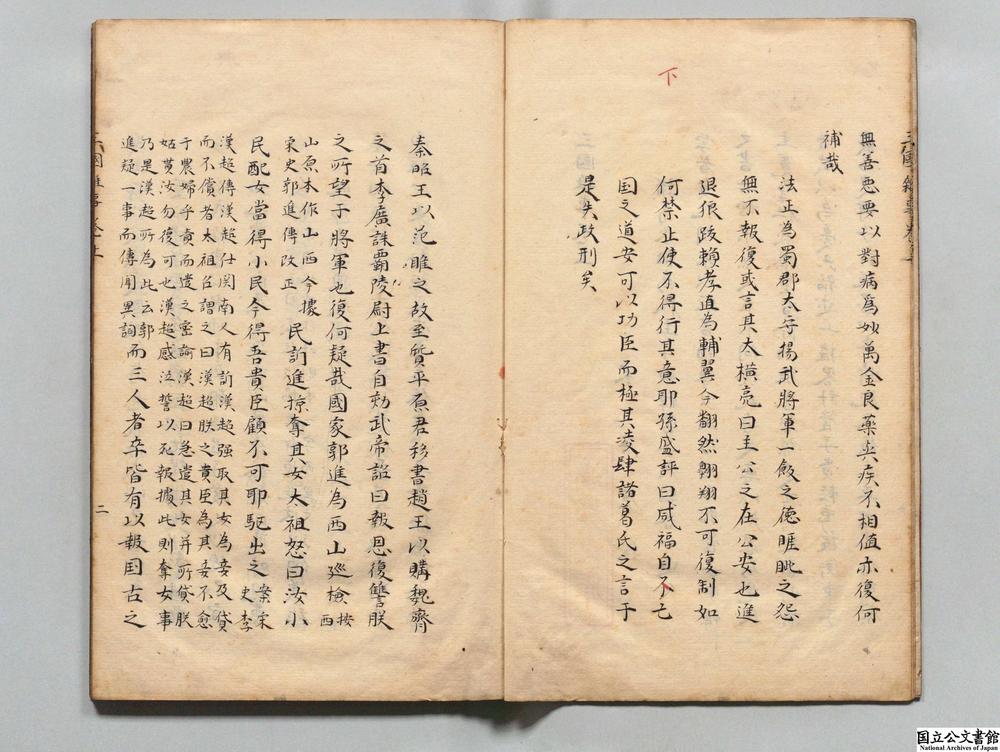 下
無善悪要以對病為妙萬金良藥與疾不相值亦復何
補哉
法正為蜀郡太守揚武將軍一飯之徳睚眦之怨
無不報復或言其太横亮曰主公之在公安也進
退狼跋賴孝直為輔翼今翻然翱翔不可復制如
何禁止使不得行其意耶孫盛評曰威福自下亡
国之道安可以功臣而極其凌肆諸葛氏之言于
是失政刑矣
秦昭王以范雎之故至質平原君移書趙王以購魏齊
之首李廣誅霸陵尉上書自劾武帝詔曰報恩復讐朕
之所望于將軍也復何疑哉國家郭進為西山廵檢按西
山原本作山西今據
宋史郭進傳改正民訴進掠奪其女太祖怒曰汝小
民配女當得小民今得吾貴臣顧不可耶駈出之案宋史李
漢超傳漢超仕関南人有訴漢超强取其女為妾及貸
而不償者太祖召謂之曰漢超朕之貴臣為其妾不愈
于農婦乎責而遣之密諭漢超曰急遣其女并所貸朕
姑貰汝勿復可也漢超感泣誓以死報據此則奪女事
乃是漢超所為此云郭
進疑一事而傳聞異詞而三人者卒皆有以報国古之
二
国立公文書館
National Archives of Japan